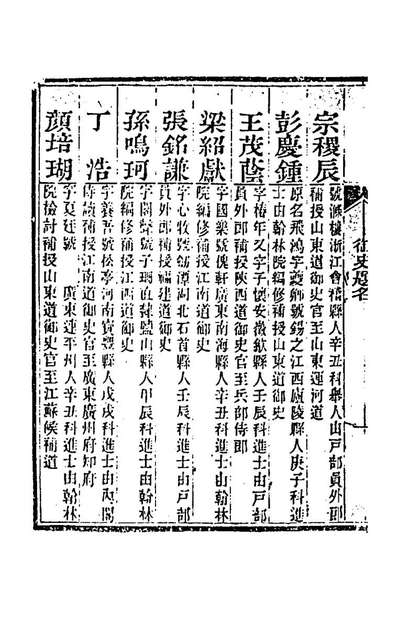 宗稷辰
號滌樓浙江會稽縣人辛丑科舉人由戸部員外郎
補授山東道御史官至山東運河道
彭慶鍾
原名飛鴻字蓉卿號錫之江西廬陵縣人庚子科進
士由翰林院編修補授山東道御史
王茂蔭
字椿年又字子懷安徽歙縣人壬辰科進士由戸部
員外郎補授陝西道御史官至兵部侍郎
梁紹獻
字國樂號槐軒廣東南海縣人辛丑科進士由翰林
院編修補授江南道御史
張銘謙
字心牧號劒潭湖北石首縣人壬辰科進士由戸部
員外郎補授福建道御史
孫鳴珂
字閬聲號子瑪直隸鹽山縣人甲辰科進士由翰林
院編修補授江西道御史
丁浩
字養吾號松亭河南寶豐縣人戊戌科進士由內閣
侍讀補授江南道御史官至廣東廣州府知府
顏培瑚
字夏廷號 廣東連平州人辛丑科進士由翰林
院檢討補授山東道御史官至江蘇候補道
御史題名